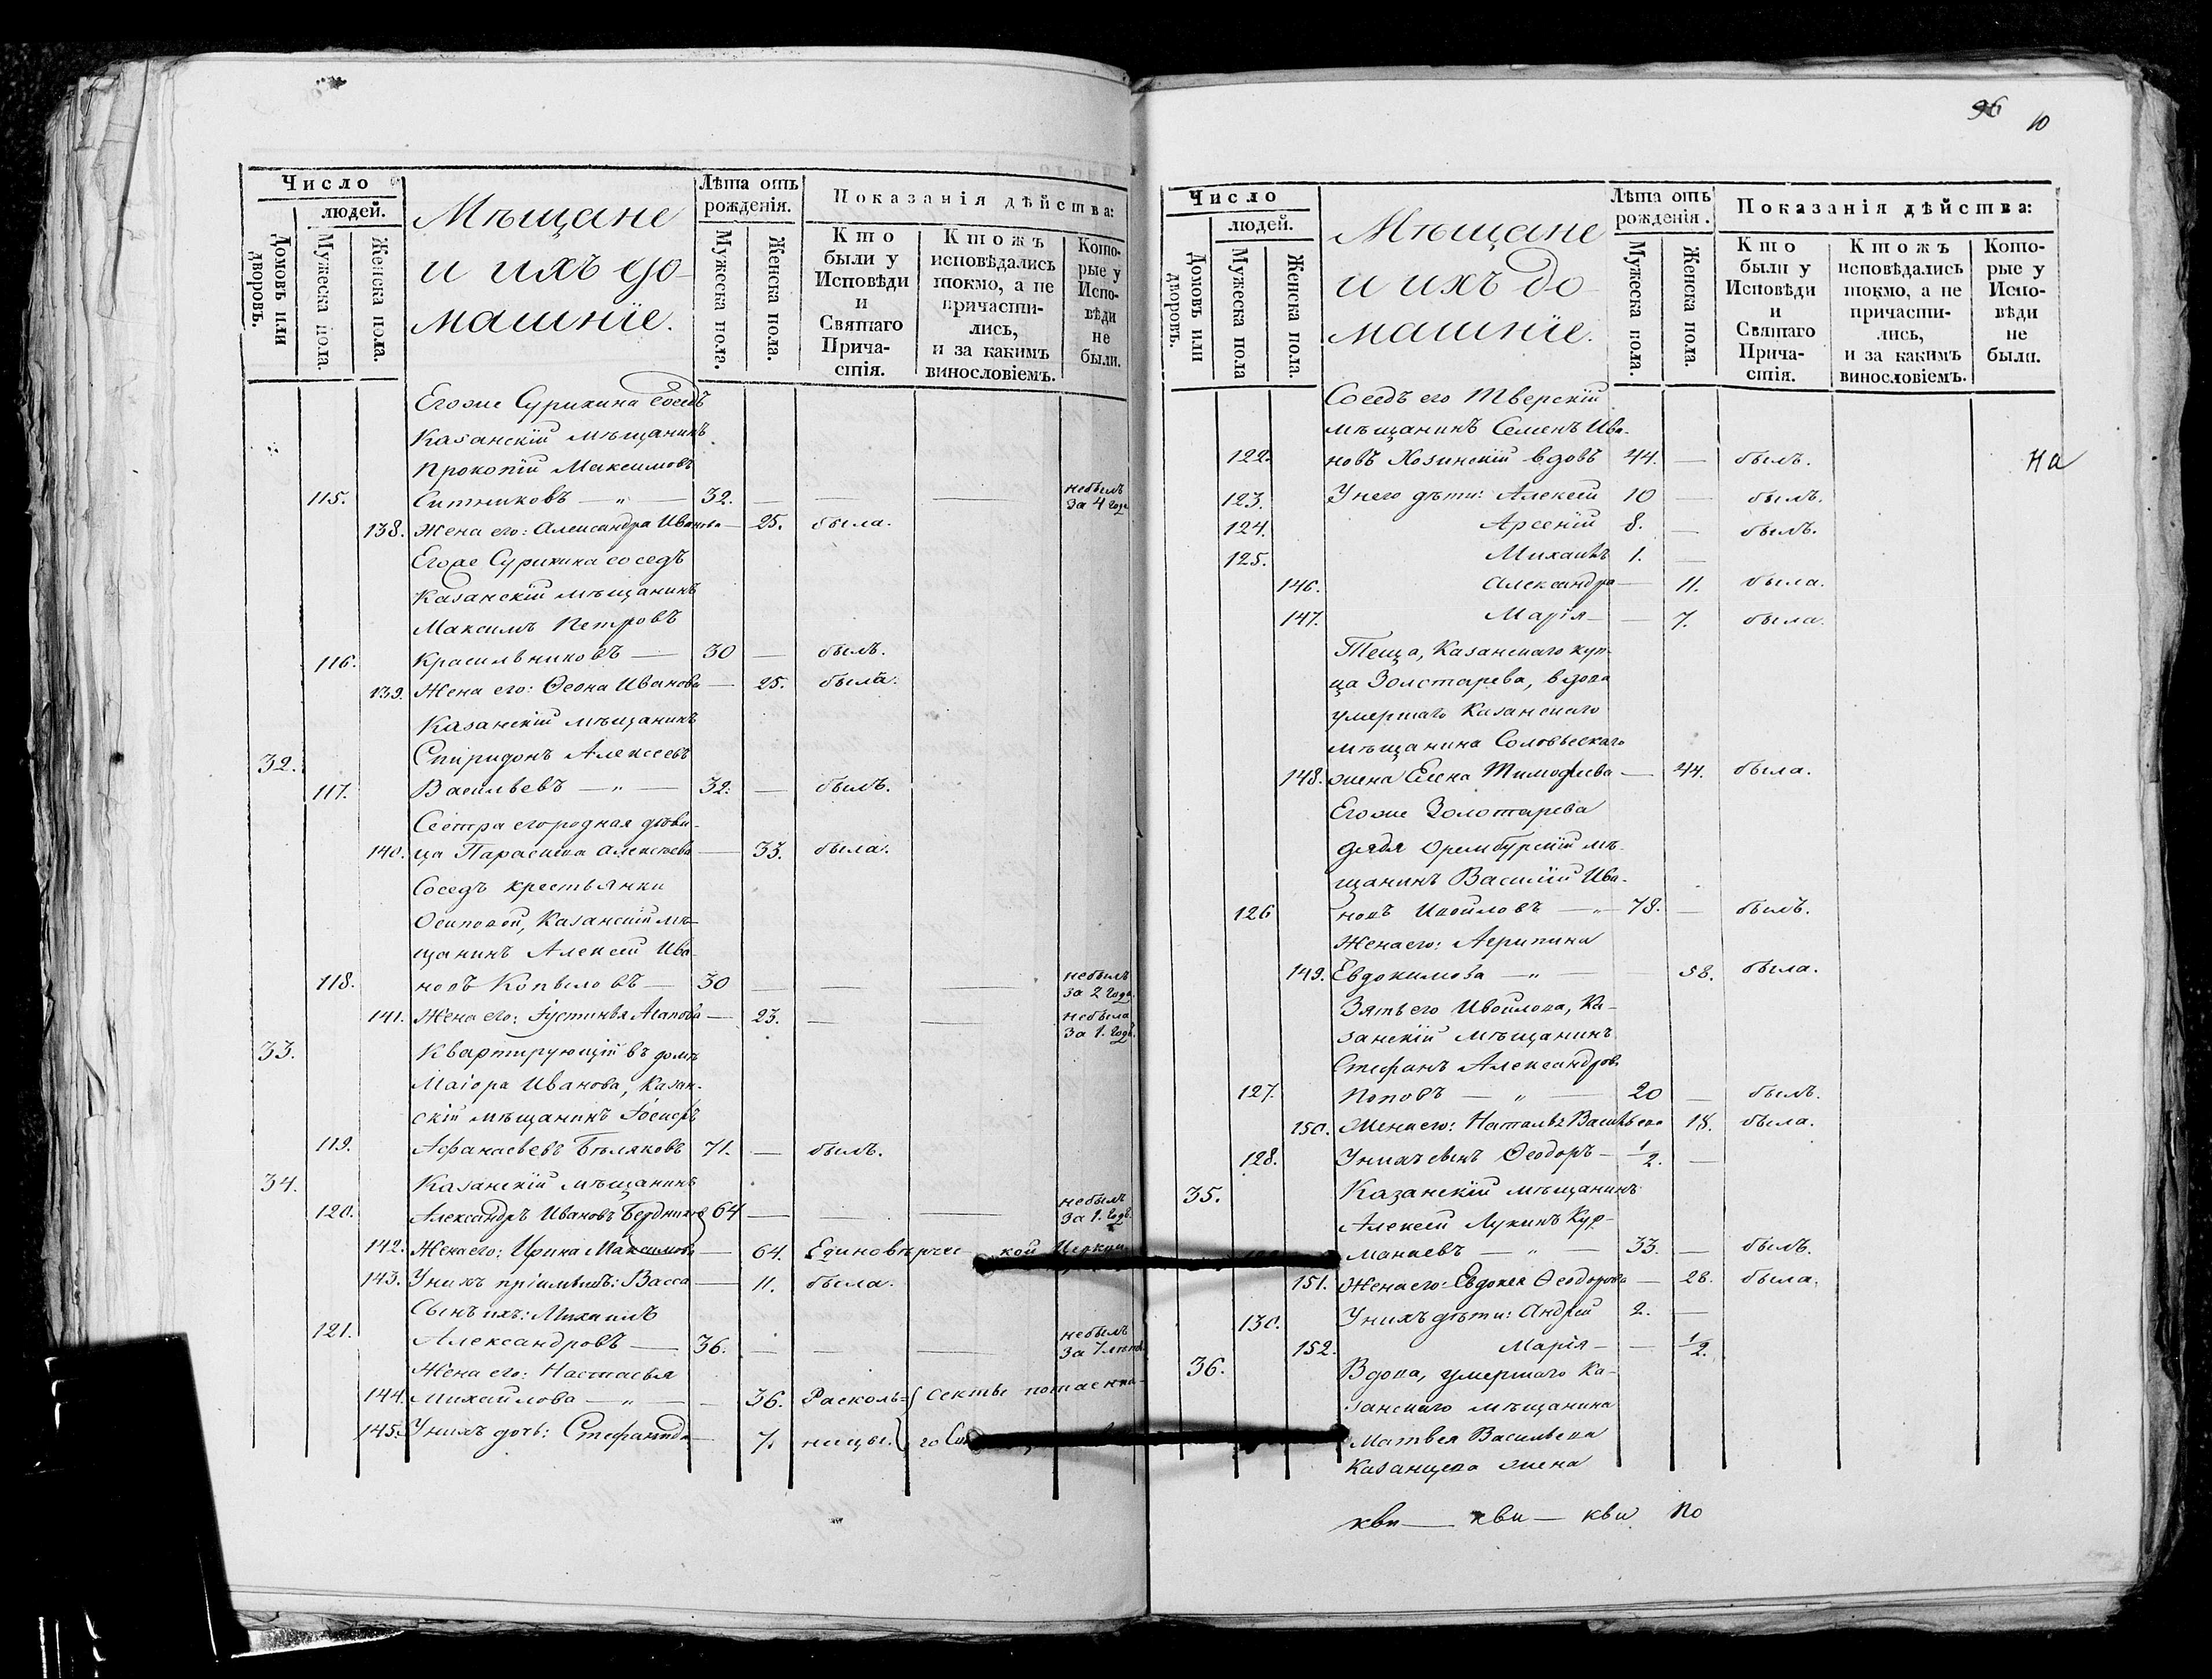 Число
людей.
Домовъ или дворовъ.
Мужеска пола.
Женска пола.
Мѣщане
и ихъ до-
машнiе.
Лѣта отъ
рожденiя.
Мужеска пола.
Женска пола.
Показанiя дѣйства:
Кто
были у
Исповѣди
и
Святаго
Прича-
стiя.
Ктожъ
исповѣдались
токмо, а не
причасти-
лись,
и за какимъ
винословiемъ.
Кото-
рые у
Испо-
вѣди
не
были.
Егоже Сурикина соседъ
Казанскiй мѣщанинъ
Прокопiй Максимовъ
115. Ситниковъ — „ — 32. — — — небылъ за 4 года
138. Жена его: Александра Иванова — 25. была.
Егоже Сурикина соседъ
Казанскiй мѣщанинъ
Максимъ Петровъ
116. Красильниковъ — 30 — былъ.
139. Жена его: Ѳеона Иванова — 25. была.
Казанскiй мѣщанинъ
32. Спиридонъ Алексеевъ
117. Васильевъ — „ — 32. — былъ.
Сестра его родная дѣви-
140. ца Параскева Алексѣева — 33. была.
Соседъ крестьянки
Осиповой, Казанскiй мѣ-
щанинъ Алексей Ива-
118. новъ Копыловъ — 30 — — — небылъ за 2 года.
141. Жена его: Iустинья Агапова — 23. — — небыла за 1. годъ.
33. Квартирующiй въ домѣ
Маiора Иванова, Казан-
скiй мѣщанинъ Iосифъ
119. Афанасьевъ Бѣляковъ 71. — былъ.
34. Казанскiй мѣщанинъ
120. Александръ Ивановъ Бердниковъ 64 — — — небылъ за 1. годъ.
142. Жена его: Ирина Максимова — 64. Единовѣрчес кой Церкви
143. У нихъ прiимышъ: Васса — 11. была.
Сынъ ихъ: Михаилъ
121. Александровъ — 36. — — — небылъ за 7 лѣтъ
Жена его: Настасья
144. Михайлова — „ — — 36. Расколь= секты потаенна-
145. У нихъ дочь: Стефанида — 7. ницы. го
96
10
Число
людей.
Домовъ или дворовъ.
Мужеска пола
Женска пола.
Мѣщане
и ихъ до-
машнiе.
Лѣта отъ
рожденiя.
Мужеска пола.
Женска пола.
Показанiя дѣйства:
Кто
были у
Исповѣди
и
Святаго
Прича-
стiя.
Ктожъ
исповѣдались
токмо, а не
причасти-
лись,
и за какимъ
винословiемъ.
Кото-
рые у
Испо-
вѣди
не
были.
Соседъ его Тверскiй
мѣщанинъ Семенъ Ива-
122. новъ Козинскiй вдовъ 44. — былъ. На
123. У него дѣти: Алексей 10 — былъ.
124. Арсенiй 8. — былъ.
125. Михаилъ 1. —
146. Александра — 11. была.
147. Марiя — — 7. была.
Теща, Казанскаго куп-
ца Золотарева, вдова
умершаго Казанскаго
мѣщанина Соловьескаго
148. жена Елена Тимофеева — 44. была.
Егоже Золотарева
дядя Оренбургскiй мѣ-
щанинъ Василiй Ива-
126 новъ Ивойловъ — „ — 78. — былъ.
Жена его: Агрипина
149. Евдокимова — „ — 58. была.
Зять его Ивойлова, Ка-
занскiй мѣщанинъ
Стефанъ Александровъ
127. Поповъ — „ — 20 — былъ.
150. Жена его: Наталья Васильева 18. была.
128. У нихъ сынъ Ѳеодоръ — 1/2. —
35. Казанскiй мѣщанинъ
Алексей Лукинъ Кур-
манаевъ — „ — 33. — былъ.
151. Жена его: Евдокея Ѳеодорова — 28. была.
130. У нихъ дѣти: Андрей 2. —
152. Марiя — — 1/2.
36. Вдова, умершаго Ка-
занскаго мѣщанина
Матвея Васильева
Казанцева жена
кви — кви — кви по